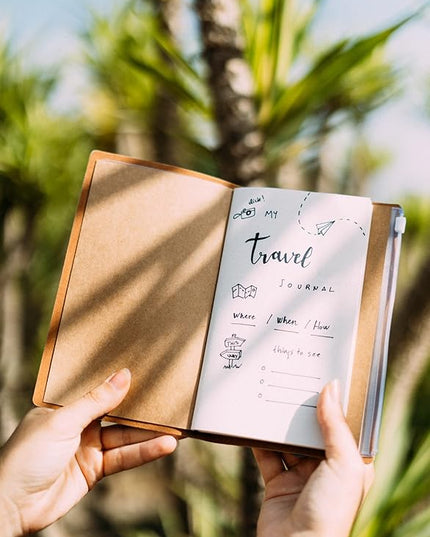 click!
MY
travel
JOURNAL
Where / When / How
THIS
WAY
things to see